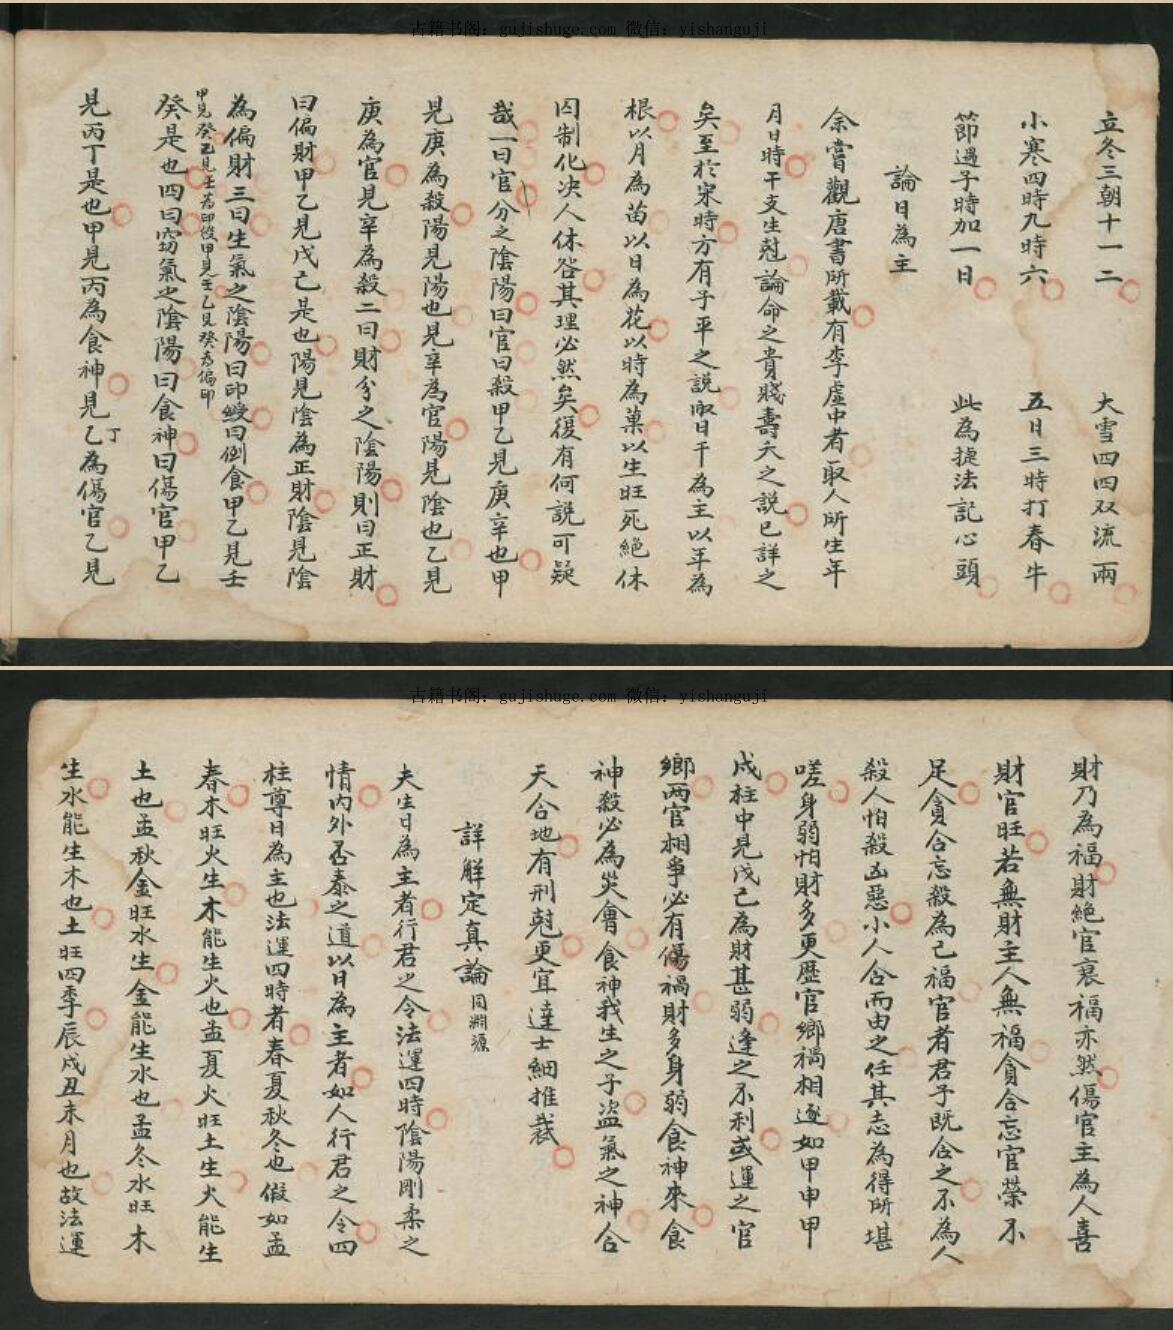 古籍书阁：gujishuge.com 微信：yishanguji
立冬三朝十一二 大雪四四双流兩
小寒四時九時六 五日三時打春牛
節過子時加一日 此為捷法記心頭
論日為主
余嘗觀唐書所載有李虛中者取人所生年
月日時干支生尅論命之貴賤壽夭之説已詳之
矣至於宋時方有子平之説取日干為主以年為
根以月為苗以日為花以時為菓以生旺死絕休
囚制化决人休咎其理必然矣復有何説可疑
哉一曰官分之陰陽曰官曰殺甲乙見庚辛也甲
見庚為殺陽見陽也見辛為官陽見陰也乙見
庚為官見辛為殺二曰財分之陰陽則曰正財
曰偏財甲乙見戊己是也陽見陰為正財陰見陰
為偏財三曰生氣之陰陽曰印綬曰倒食甲乙見壬
甲見癸乙見壬為印綬甲見壬乙見癸為偏印
癸是也四曰窃氣之陰陽曰食神曰傷官甲乙
見丙丁是也甲見丙為食神見丁乙為傷官乙見
古籍书阁：gujishuge.com 微信：yishanguji
財乃為福財絕官衰福亦然傷官主為人喜
財官旺若無財主人無福貪合忘官榮不
足貪合忘殺為己福官者君子既合之不為人
殺人怕殺凶惡小人合而由之任其志為得所堪
嗟身弱怕財多更歷官鄉禍相逐如甲申甲
戌柱中見戊己為財甚弱逢之不利或運之官
鄉两官相爭必有傷禍財多身弱食神來食
神殺必為災會食神我生之子盜氣之神合
天合地有刑尅更宜達士細推裁
詳解定真論同淵源
夫生日為主者行君之令法運四時陰陽剛柔之
情内外否泰之道以日為主者如人行君之令四
柱尊日為主也法運四時者春夏秋冬也假如孟
春木旺火生木能生火也孟夏火旺土生火能生
土也孟秋金旺水生金能生水也孟冬水旺木
生水能生木也土旺四季辰戌丑未月也故法運